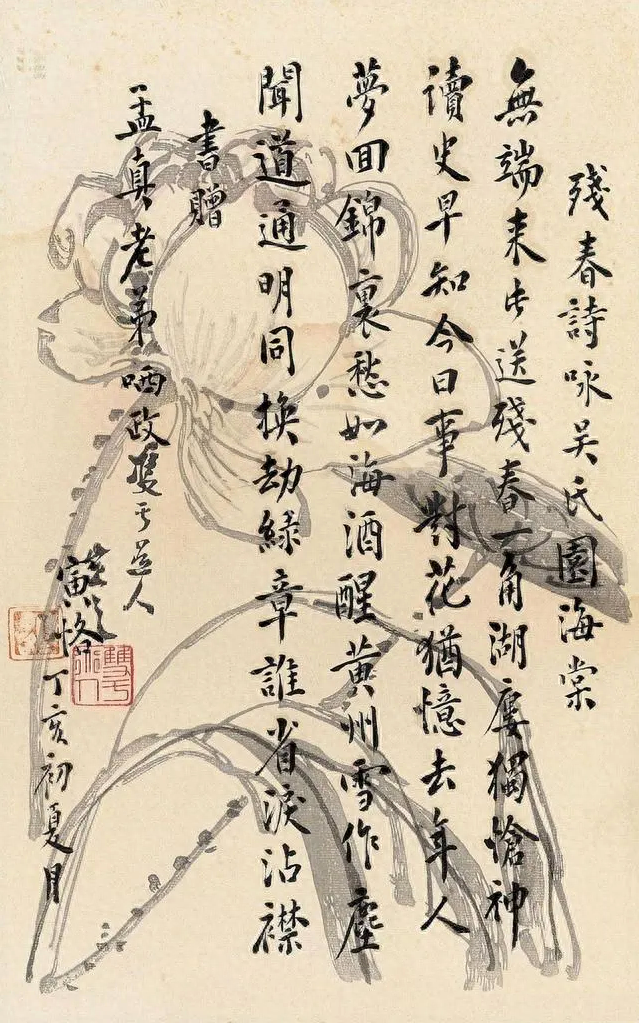 殘春詩咏吴氏園海棠
無端来此送殘春一角湖廔獨愴神
讀史早知今日事對花猶憶去年人
夢回錦裏愁如海酒醒黃州雪作塵
聞道通明同換劫緑章誰省淚沾襟
書贈
孟真老弟哂政道人
寅恪
丁亥初夏月